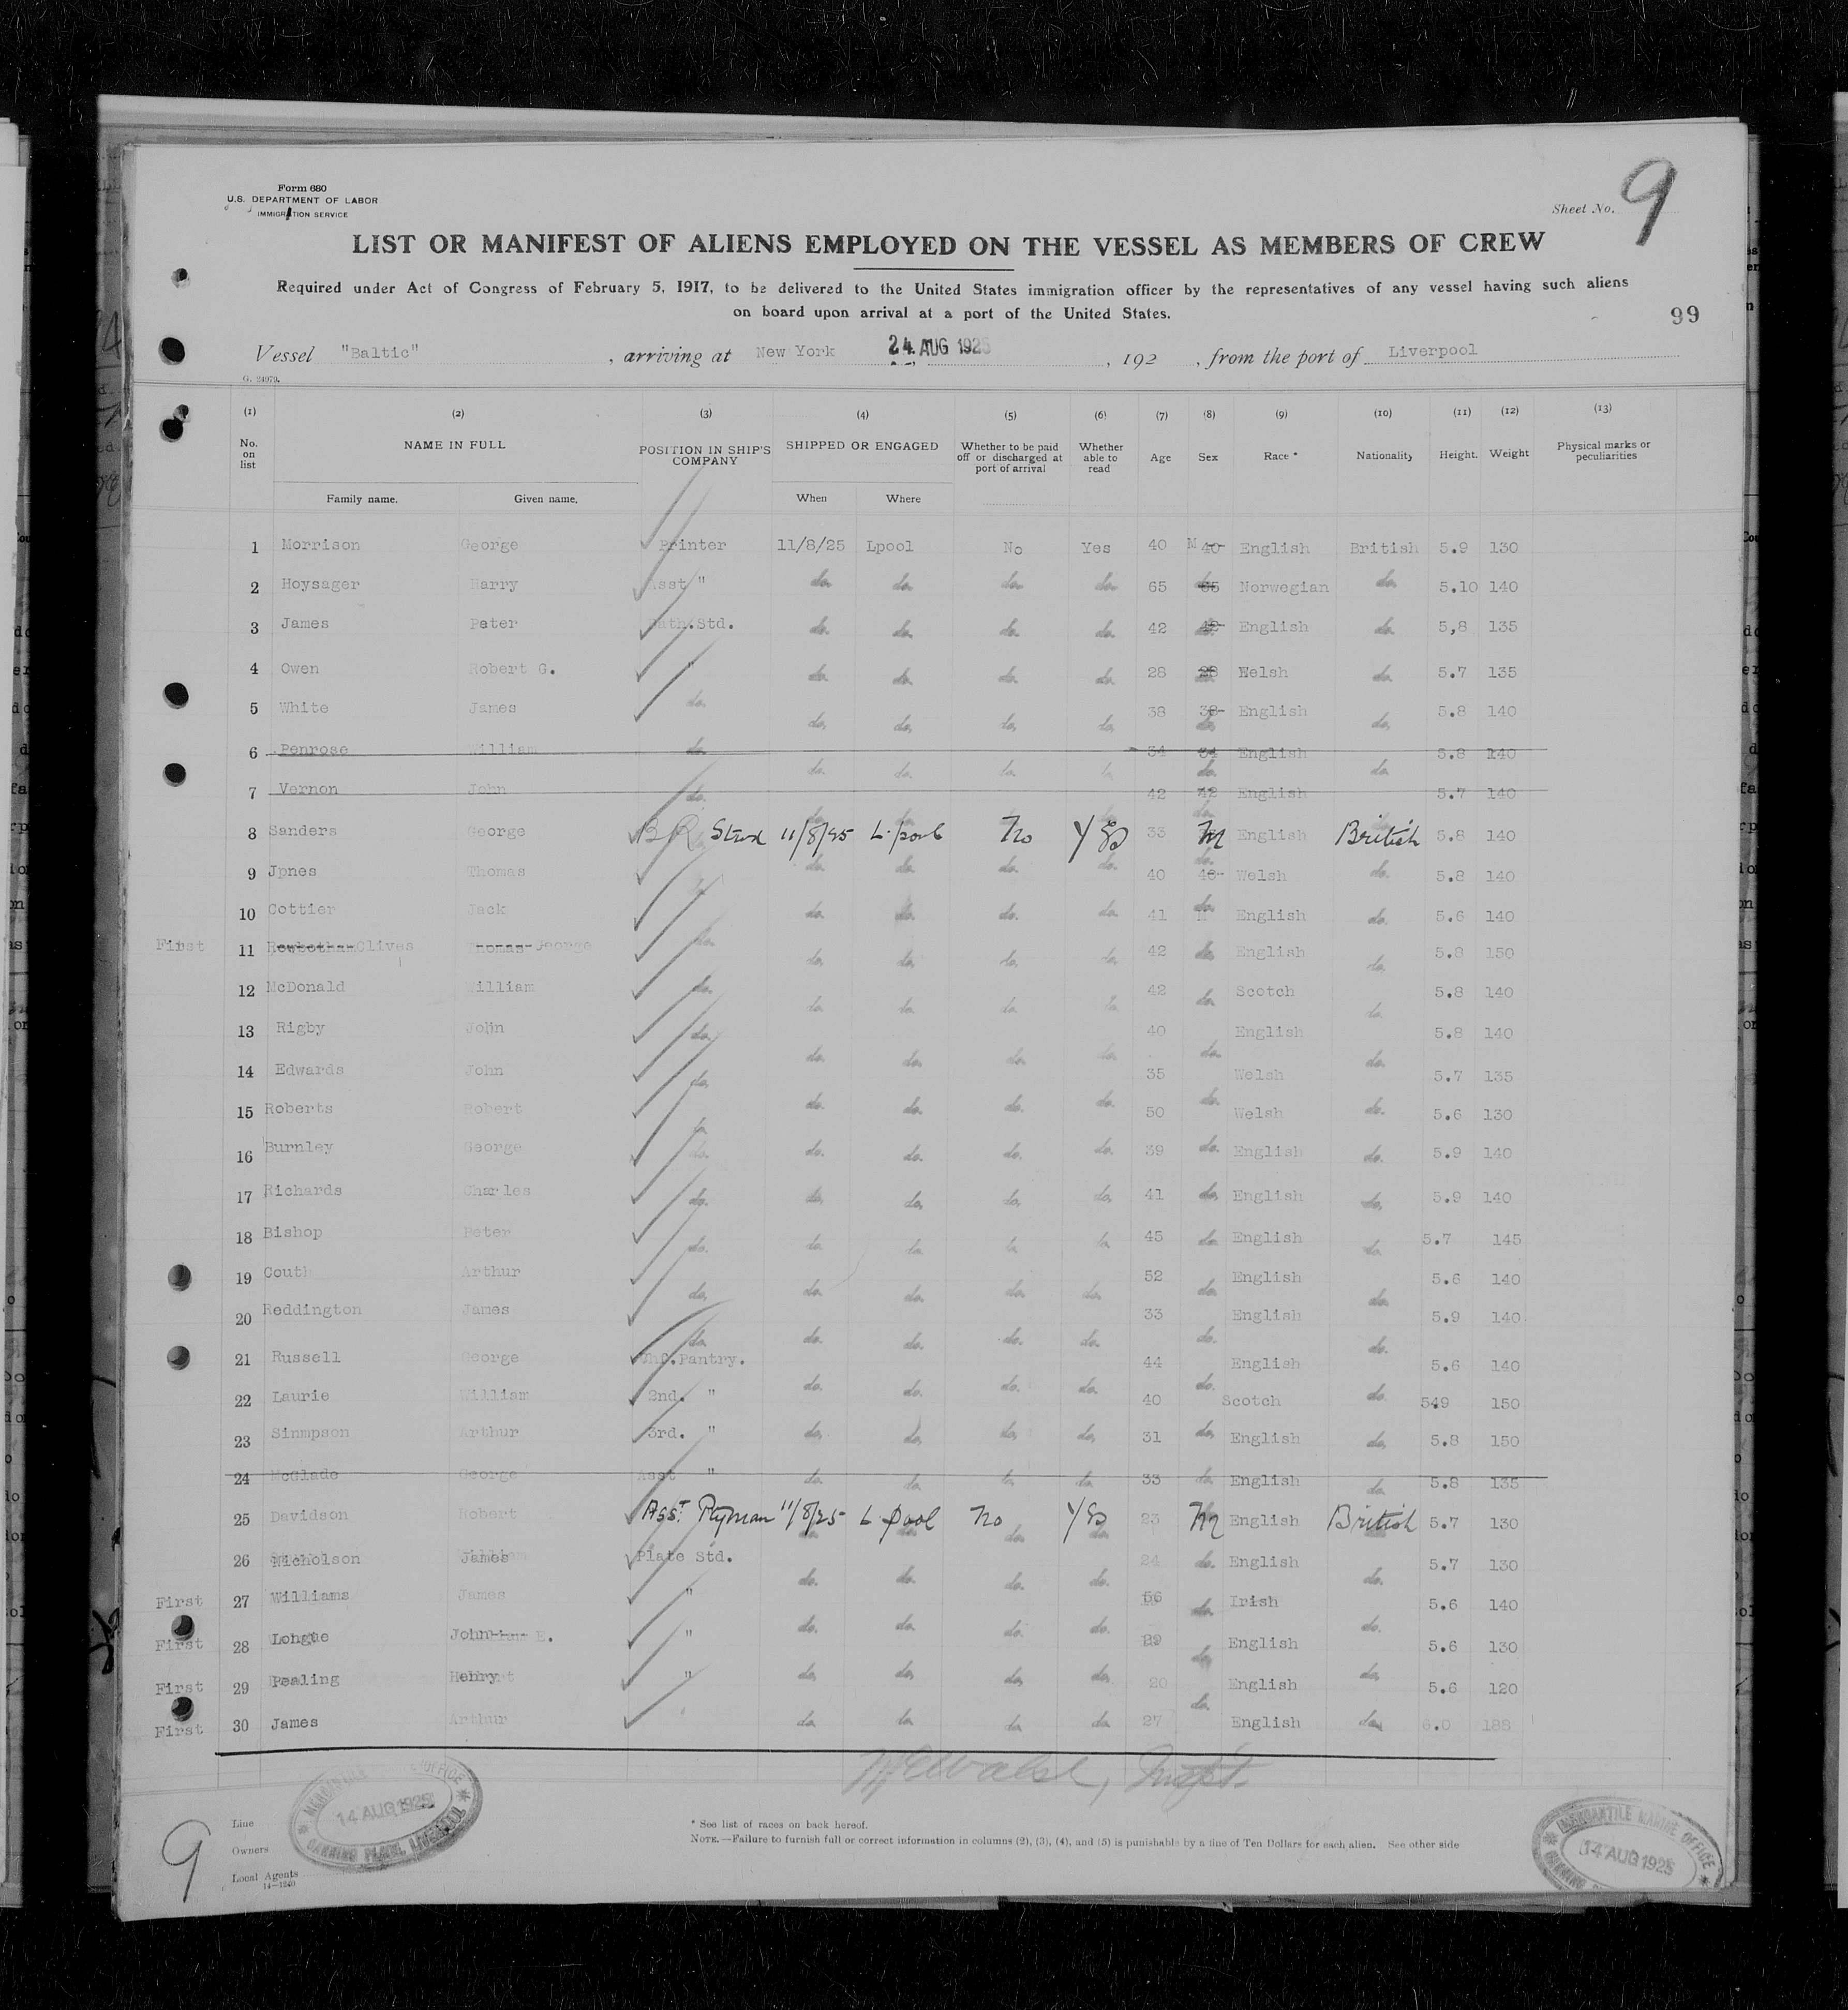 Form 680
U.S. DEPARTMENT OF LABOR
IMMIGRATION SERVICE
Sheet No. 9
LIST OR MANIFEST OF ALIENS EMPLOYED ON THE VESSEL AS MEMBERS OF CREW
Required under Act of Congress of February 5, 1917, to be delivered to the United States immigration officer by the representatives of any vessel having such aliens
on board upon arrival at a port of the United States.
99
Vessel "Baltic" , arriving at New York 24 AUG 1925 , 192 , from the port of Liverpool
G. 24979.
(1) (2) (3) (4) (5) (6) (7) (8) (9) (10) (11) (12) (13)
No. on list NAME IN FULL POSITION IN SHIP'S COMPANY SHIPPED OR ENGAGED Whether to be paid off or discharged at port of arrival Whether able to read Age Sex Race * Nationality Height. Weight Physical marks or peculiarities
Family name. Given name. When Where
1 Morrison George Printer 11/8/25 Lpool No Yes 40 M 40 English British 5.9 130
2 Hoysager Harry Asst " do. do. do. do. 65 65 do. Norwegian do. 5.10 140
3 James Peter Bath.Std. do. do. do. do. 42 42 do. English do. 5,8 135
4 Owen Robert G. " do. do. do. do. 28 28 do. Welsh do. 5.7 135
5 White James do. do. do. do. do. 38 38 do. English do. 5.8 140
6 Penrose William do. do. do. do. do. 34 34 do. English do. 5.8 140
7 Vernon John do. 42 42 do. English 5.7 140
8 Sanders George B R Stwd 11/8/25 L.pool No Yes 33 M English British 5.8 140
9 Jpnes Thomas do. do. do. do. 40 40 do. Welsh do. 5.8 140
10 Cottier Jack do. do. do. do. 41 do. English do. 5.6 140
First 11 Rowbotham Clives Thomas George do. do. do. do. do. 42 do. English do. 5.8 150
12 McDonald William do. do. do. do. do. 42 do. Scotch do. 5.8 140
13 Rigby John do. do. do. do. do. 40 do. English do. 5.8 140
14 Edwards John do. do. do. do. do. 35 do. Welsh do. 5.7 135
15 Roberts Robert do. do. do. do. do. 50 do. Welsh do. 5.6 130
16 Burnley George do. do. do. do. do. 39 do. English do. 5.9 140
17 Richards Charles do. do. do. do. do. 41 do. English do. 5.9 140
18 Bishop Peter do. do. do. do. do. 45 do. English do. 5.7 145
19 Couth Arthur do. do. do. do. do. 52 do. English do. 5.6 140
20 Reddington James do. do. do. do. do. 33 do. English do. 5.9 140
21 Russell George Pantry. do. do. do. do. 44 do. English do. 5.6 140
22 Laurie William 2nd. " do. do. do. do. 40 Scotch do. 549 150
23 Sinmpson Arthur 3rd. " do. do. do. do. 31 do. English do. 5.8 150
24 McGlade George Asst " do. do. do. do. 33 do. English do. 5.8 135
25 Davidson Robert Asst. Ptyman 11/8/25 L pool No Yes 23 M English British 5.7 130
26 Nicholson James Plate Std. do. do. do. do. 24 do. English do. 5.7 130
First 27 Williams James " do. do. do. do. 56 do. Irish do. 5.6 140
First 28 Longue John E. " do. do. do. do. 29 do. English do. 5.6 130
First 29 Pealing Henry " do. do. do. do. 20 do. English do. 5.6 120
First 30 James Arthur do. do. do. do. 27 English do. 6.0 188
Walsh, Inspt.
MERCANTILE MARINE OFFICE
14 AUG 1925
CANNING PLACE, LIVERPOOL
9
Line
Owners
Local Agents
14—1240
* See list of races on back hereof.
NOTE.—Failure to furnish full or correct information in columns (2), (3), (4), and (5) is punishable by a fine of Ten Dollars for each alien. See other side
MERCANTILE MARINE OFFICE
14 AUG 1925
CANNING